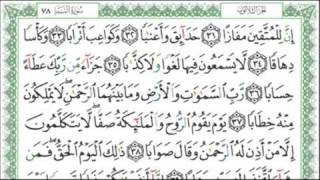 الجزء الثلاثون سورة النبإ ٧٨
إِنَّ لِلْمُتَّقِينَ مَفَازًا ٣١ حَدَآئِقَ وَأَعْنَٰبًا ٣٢ وَكَوَاعِبَ أَتْرَابًا ٣٣ وَكَأْسًا
دِهَاقًا ٣٤ لَّا يَسْمَعُونَ فِيهَا لَغْوًا وَلَا كِذَّٰبًا ٣٥ جَزَآءً مِّن رَّبِّكَ عَطَآءً
حِسَابًا ٣٦ رَّبِّ ٱلسَّمَٰوَٰتِ وَٱلْأَرْضِ وَمَا بَيْنَهُمَا ٱلرَّحْمَٰنِ لَا يَمْلِكُونَ
مِنْهُ خِطَابًا ٣٧ يَوْمَ يَقُومُ ٱلرُّوحُ وَٱلْمَلَٰٓئِكَةُ صَفًّا لَّا يَتَكَلَّمُونَ
إِلَّا مَنْ أَذِنَ لَهُ ٱلرَّحْمَٰنُ وَقَالَ صَوَابًا ٣٨ ذَٰلِكَ ٱلْيَوْمُ ٱلْحَقُّ فَمَن